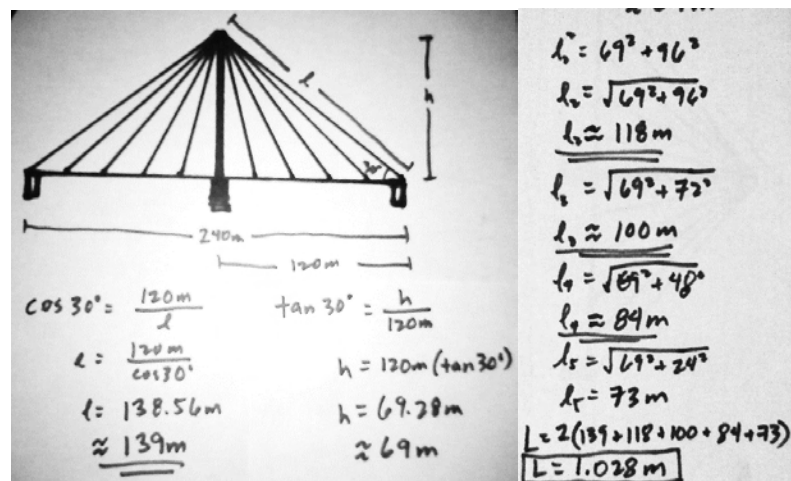 l
h
30°
240m
120m
cos 30° = 120m / l
l = 120m / cos30°
l = 138.56m
≈ 139m
tan 30° = h / 120m
h = 120m (tan 30°)
h = 69.28m
≈ 69m
l₂² = 69² + 96²
l₂ = √69² + 96²
l₂ ≈ 118m
l₃ = √69² + 72²
l₃ ≈ 100m
l₄ = √69² + 48²
l₄ ≈ 84m
l₅ = √69² + 24²
l₅ = 73m
L = 2(139 + 118 + 100 + 84 + 73)
L = 1.028 m